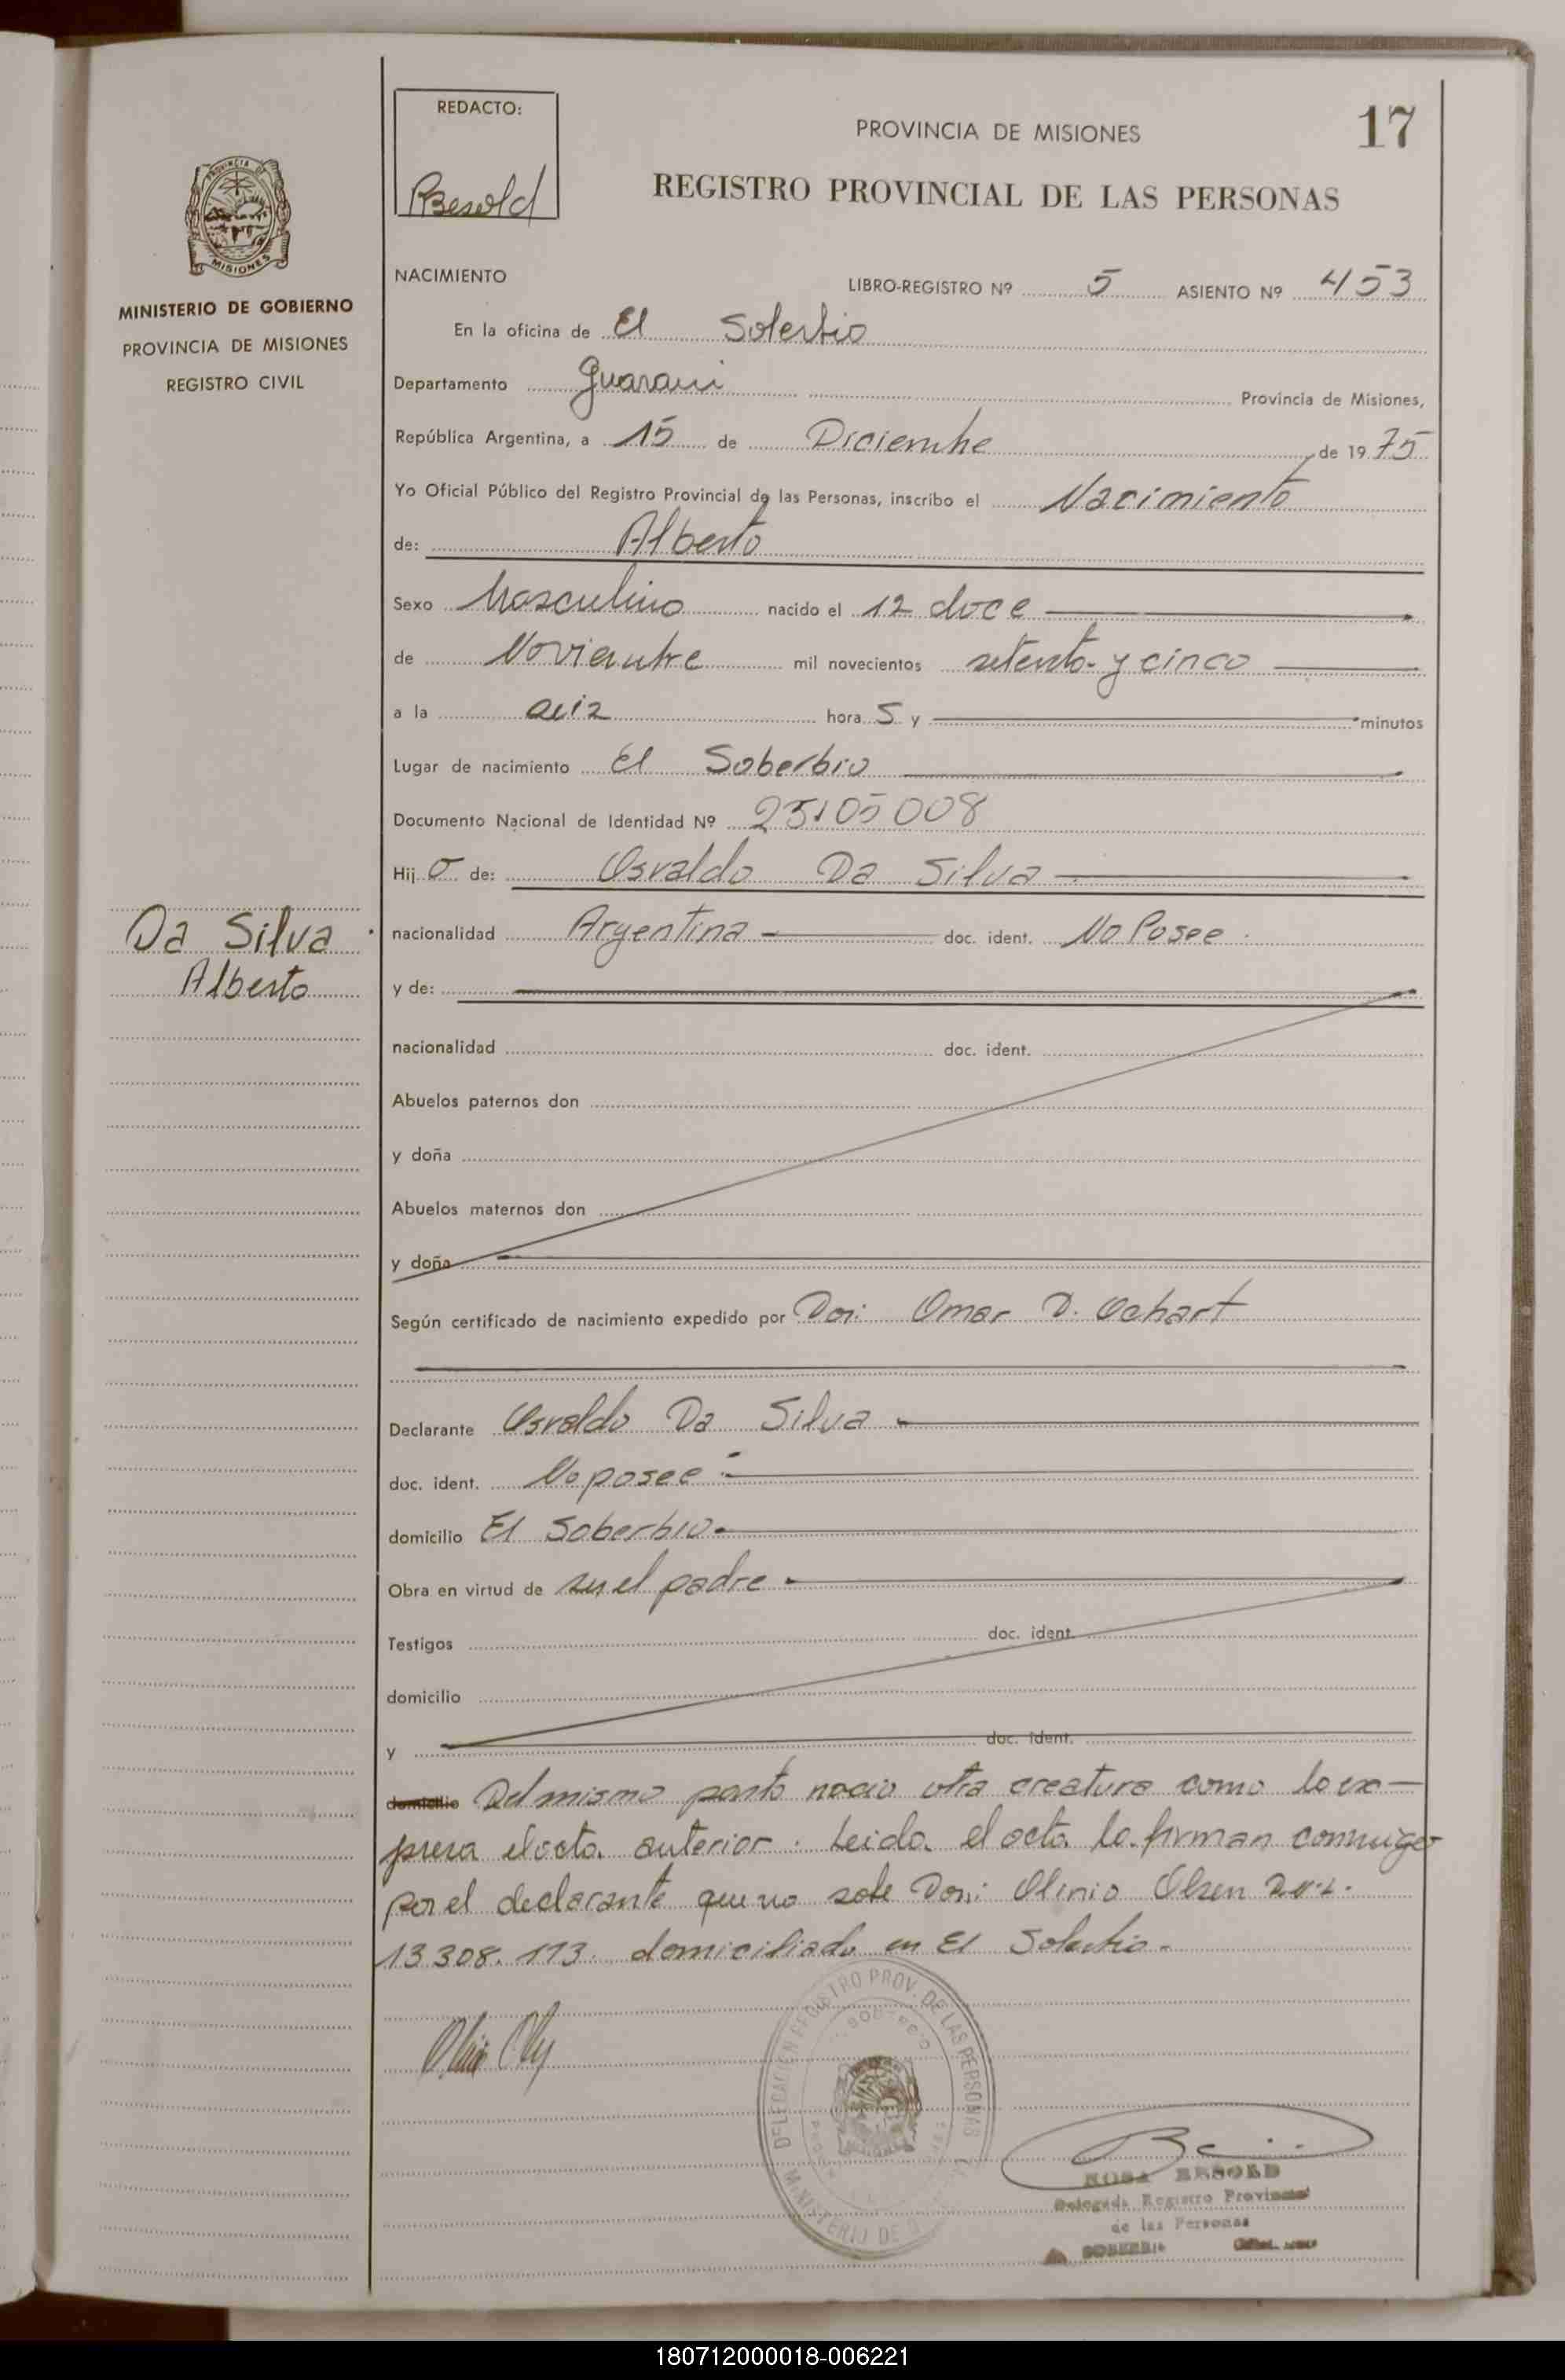 REDACTO:
PBesold
PROVINCIA DE MISIONES
17
REGISTRO PROVINCIAL DE LAS PERSONAS
PROVINCIA DE
MISIONES
MINISTERIO DE GOBIERNO
PROVINCIA DE MISIONES
REGISTRO CIVIL
NACIMIENTO
LIBRO-REGISTRO Nº 5 ASIENTO Nº 453
En la oficina de El Soberbio
Departamento Guarani Provincia de Misiones,
República Argentina, a 15 de Diciembe de 1975
Yo Oficial Público del Registro Provincial de las Personas, inscribo el Nacimiento
de: Alberto
Sexo Masculino nacido el 12 doce
de Noviembre mil novecientos setenta y cinco
a la diez hora S y minutos
Lugar de nacimiento El Soberbio
Documento Nacional de Identidad Nº 25105008
Hij o de: Osvaldo Da Silva
Da Silva
Alberto
nacionalidad Argentina doc. ident. No Posee
y de:
nacionalidad doc. ident.
Abuelos paternos don
y doña
Abuelos maternos don
y doña
Según certificado de nacimiento expedido por Don: Omar D. Ochart
Declarante Osvaldo Da Silva
doc. ident. No posee
domicilio El Soberbio
Obra en virtud de ser el padre
Testigos doc. ident.
domicilio
y doc. ident.
domicilio Del mismo parto nacio otra creatura como lo ex-
presa el acta anterior. Leida el acta la firman conmigo
por el declarante que no sabe Don: Olinio Olsen D.N.I.
13308.173. domiciliado en El Soberbio.
DELEGACION REGISTRO PROV. DE LAS PERSONAS
MINISTERIO DE
ROSA BESOLD
Delegada Registro Provincial
de las Personas
SOBERBIO
180712000018-006221